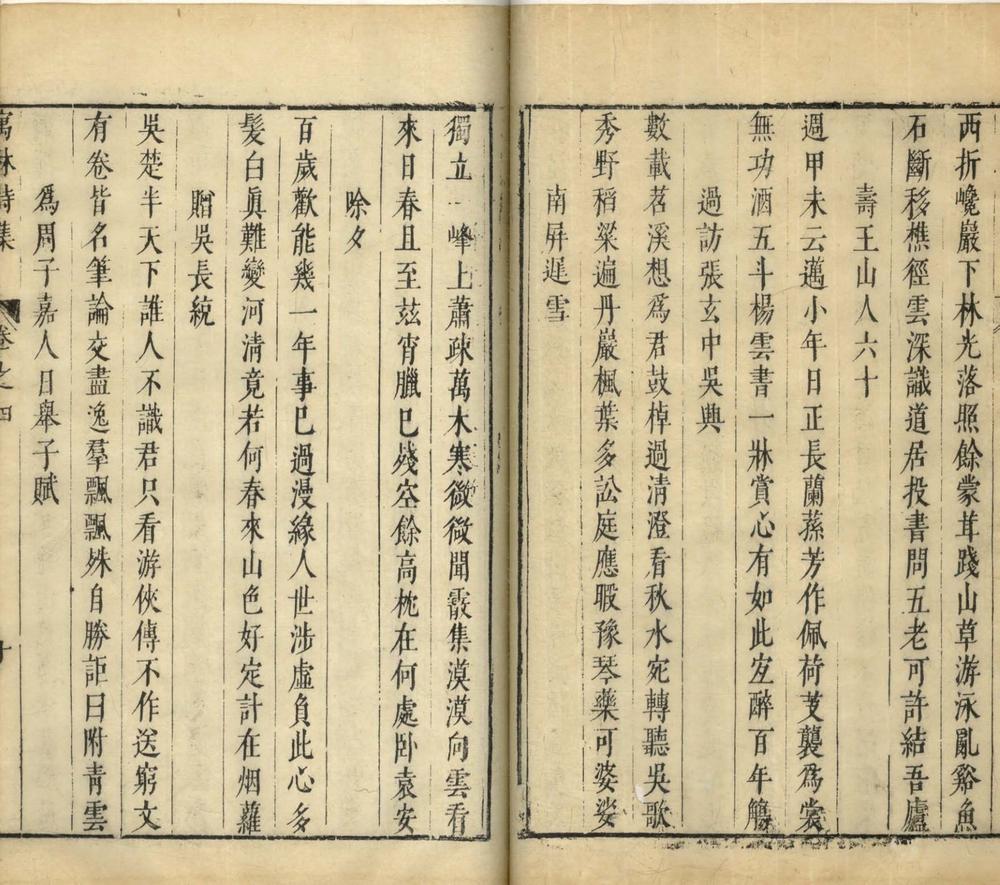 西折巉巖下林光落照餘蒙茸踐山草游泳亂谿魚
石斷移樵徑雲深識道居投書問五老可許結吾廬
壽王山人六十
週甲未云邁小年日正長蘭蓀芳作佩荷芰襲爲裳
無功酒五斗楊雲書一牀賞心有如此宐醉百年觴
過訪張玄中吳興
數載苕溪想爲君鼓棹過清澄看秋水宛轉聽吳歌
秀野稻粱遍丹巖楓葉多訟庭應暇豫琴藥可婆娑
南屛遲雪
獨立一峰上蕭疎萬木寒微微聞霰集漠漠向雲看
來日春且至玆宵臘巳殘空餘高枕在何處卧袁安
除夕
百歲歡能幾一年事巳過漫緣人世涉虛負此心多
髮白眞難變河清竟若何春來山色好定計在烟蘿
贈吳長統
吳楚半天下誰人不識君只看游俠傳不作送窮文
有卷皆名筆論交盡逸羣飄飄殊自勝詎曰附青雲
爲周子嘉人日舉子賦
萬林詩集 卷之四 十